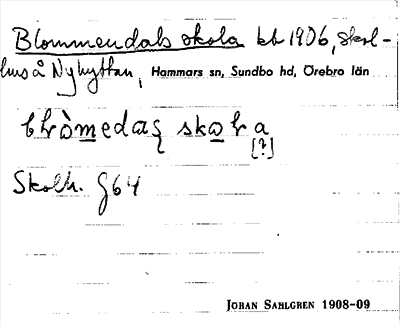 Blommendals skola kt 1906, skol-
hus å Nyhyttan, Hammars sn, Sundbo hd, Örebro län
[?]
Skolh. G64
JÖRAN SAHLGREN 1908-09